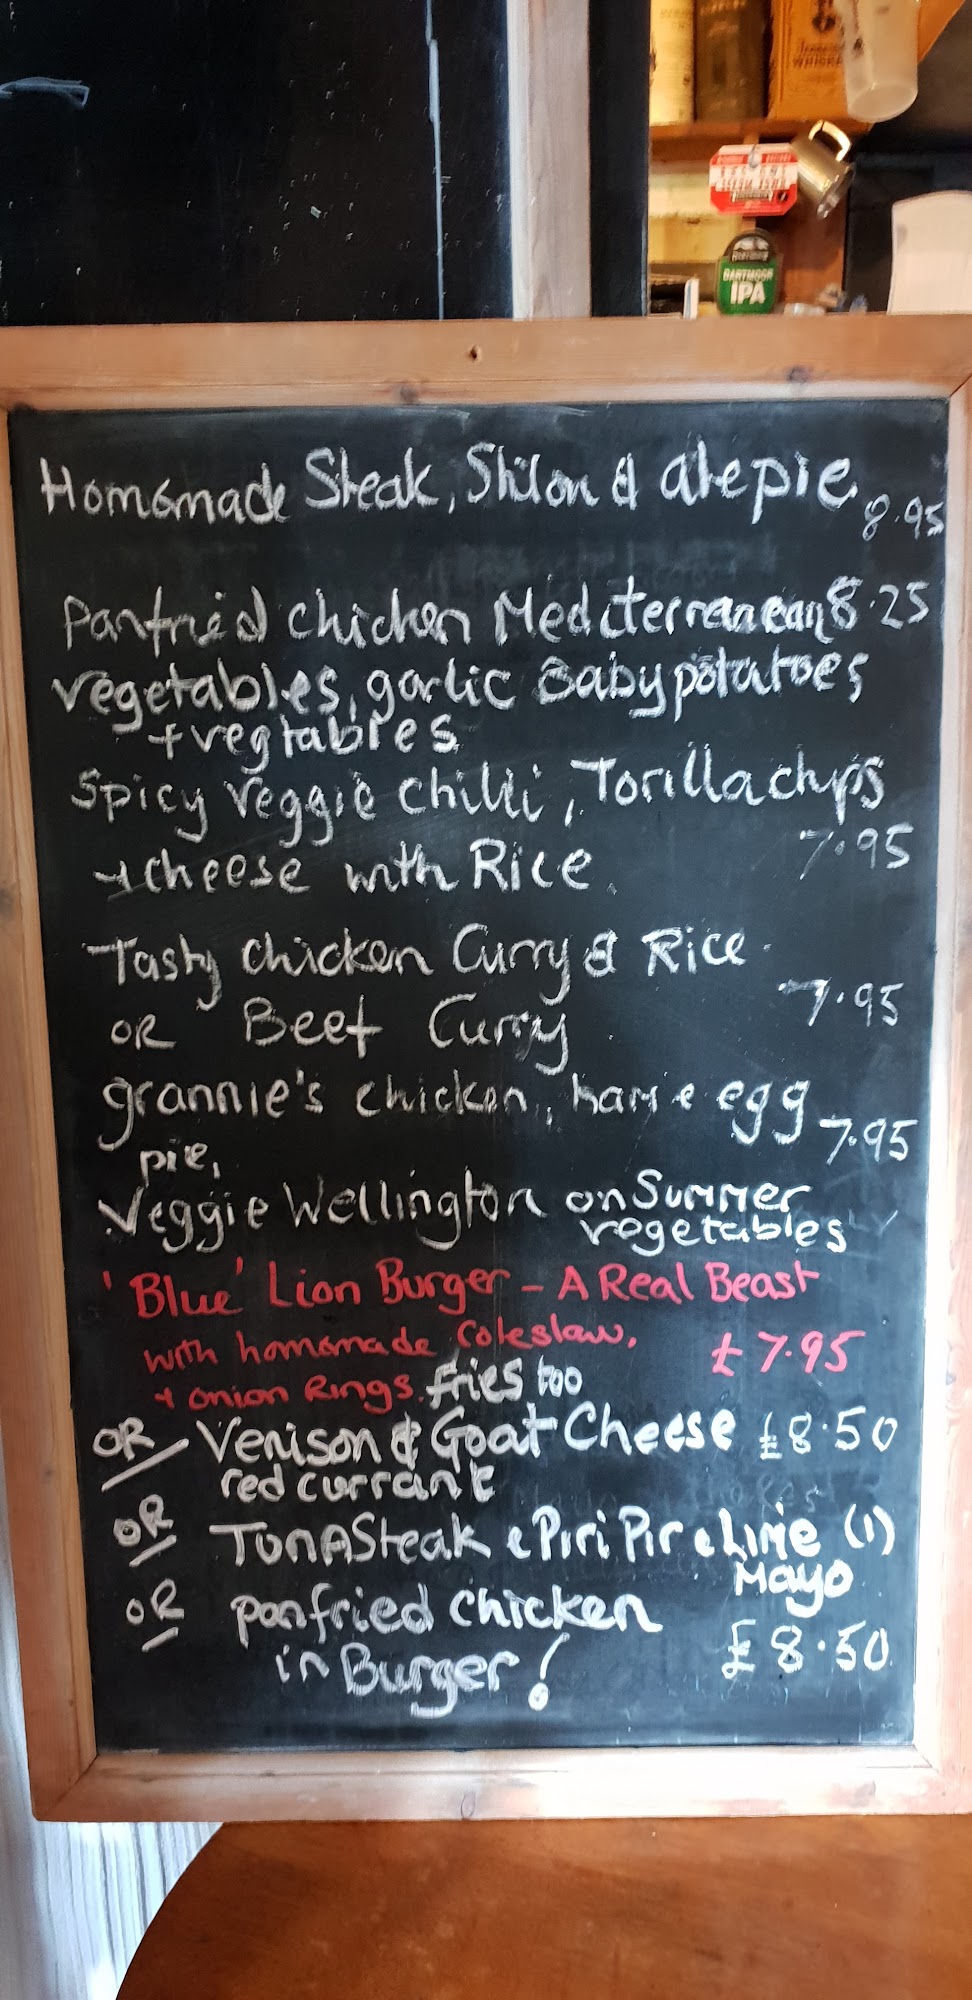 WHISKEY
DARTMOOR
IPA
Homemade Steak, Stilton & ale pie 8.95
panfried chicken Mediterranean 8.25
vegetables, garlic Baby potatoes
+ vegtables
Spicy veggie chilli, Torilla chips
+ cheese with Rice. 7.95
Tasty chicken Curry & Rice
OR Beef Curry 7.95
grannie's chicken, ham e egg
pie, 7.95
Veggie Wellington on Summer
vegetables
'Blue' Lion Burger - A Real Beast
with homemade Coleslaw, £7.95
+ onion Rings. fries too
OR Venison & Goat Cheese £8.50
red currant
OR TunA Steak e Piri Piri e Lime (1)
Mayo
OR panfried chicken
in Burger! £8.50